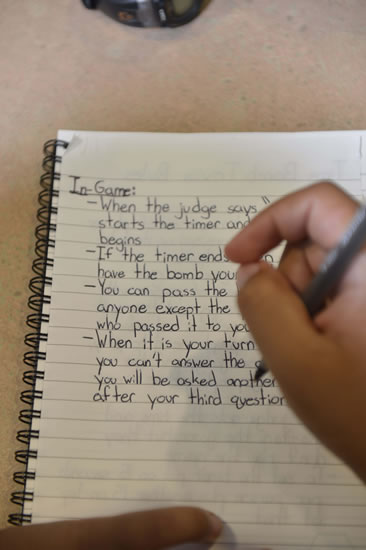 In-Game:
- When the judge says "
starts the timer and
begins
- If the timer ends
have the bomb you
- You can pass the
anyone except the
who passed it to you
- When it is your turn
you can't answer the
you will be asked another
after your third question